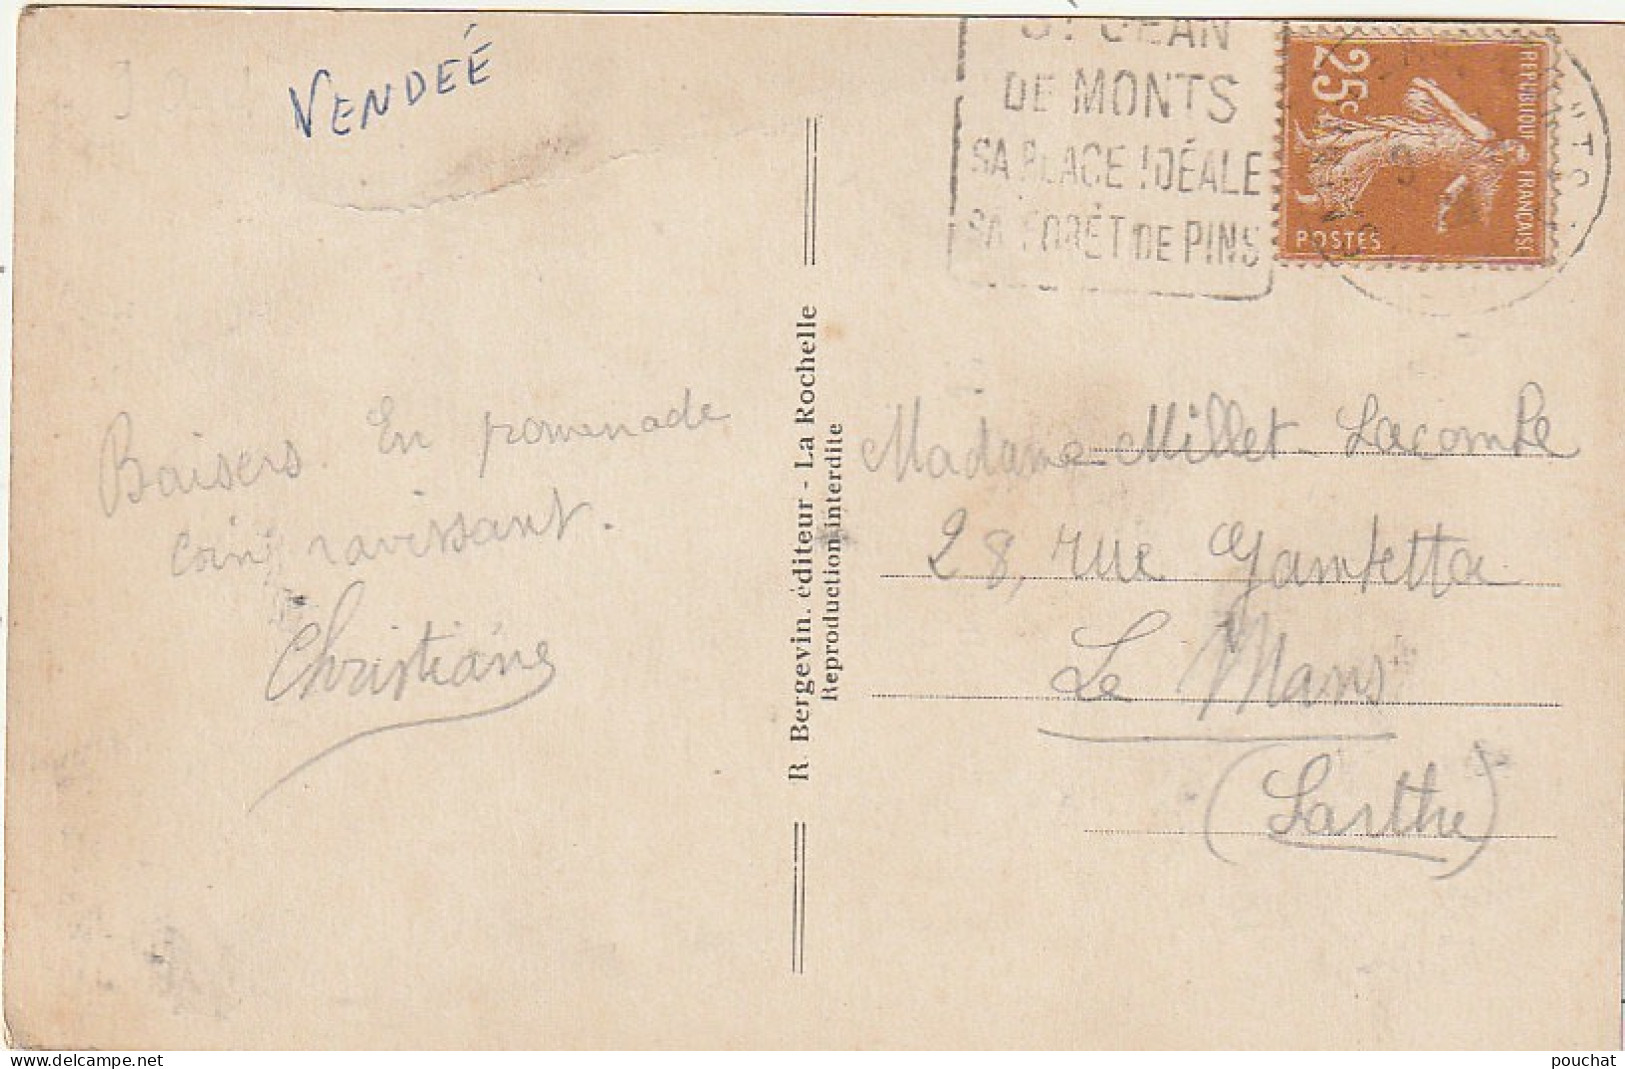 VENDEÉ
ST JEAN
DE MONTS
SA PLAGE IDÉALE
SA FORÊT DE PINS
25c
REPUBLIQUE FRANÇAISE
POSTES
Baisers. En promenade
coin ravissant.
Christiane
R. Bergevin. éditeur - La Rochelle
Reproduction interdite
Madame Millet-Lacombe
28, rue Gambetta
Le Mans
(Sarthe)
delcampe.net
pouchat